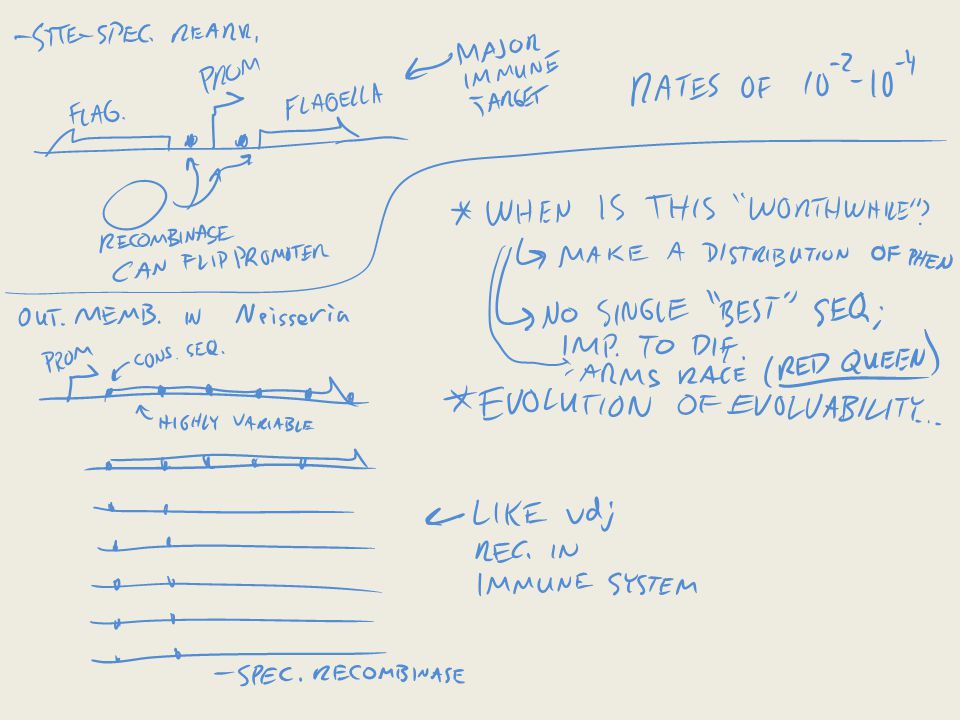 - SITE-SPEC. REARR.
PROM
FLAG.
FLAGELLA
MAJOR
IMMUNE
TARGET
RECOMBINASE
CAN FLIP PROMOTER
RATES OF 10^-2 - 10^-4
* WHEN IS THIS "WORTHWHILE"?
MAKE A DISTRIBUTION OF PHEN
NO SINGLE "BEST" SEQ;
IMP. TO DIF.
"ARMS RACE (RED QUEEN)
* EVOLUTION OF EVOLVABILITY...
OUT. MEMB. IN Neisseria
PROM
CONS. SEQ.
HIGHLY VARIABLE
LIKE vdj
REC. IN
IMMUNE SYSTEM
- SPEC. RECOMBINASE